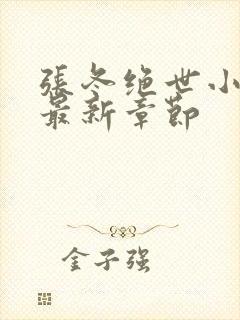 張冬绝世小
最新章節
金子强